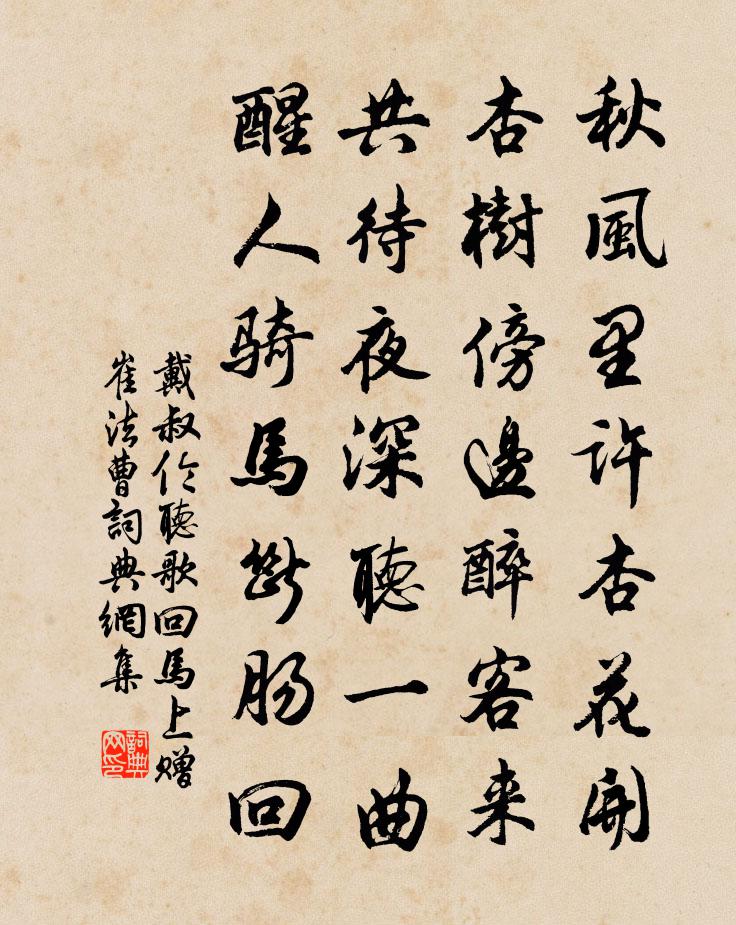 秋風里許杏花開
杏樹傍邊醉客来
共待夜深聽一曲
醒人骑馬斷肠回
戴叔伦聽歌回馬上赠
崔法曹詞典網集
詞典网印